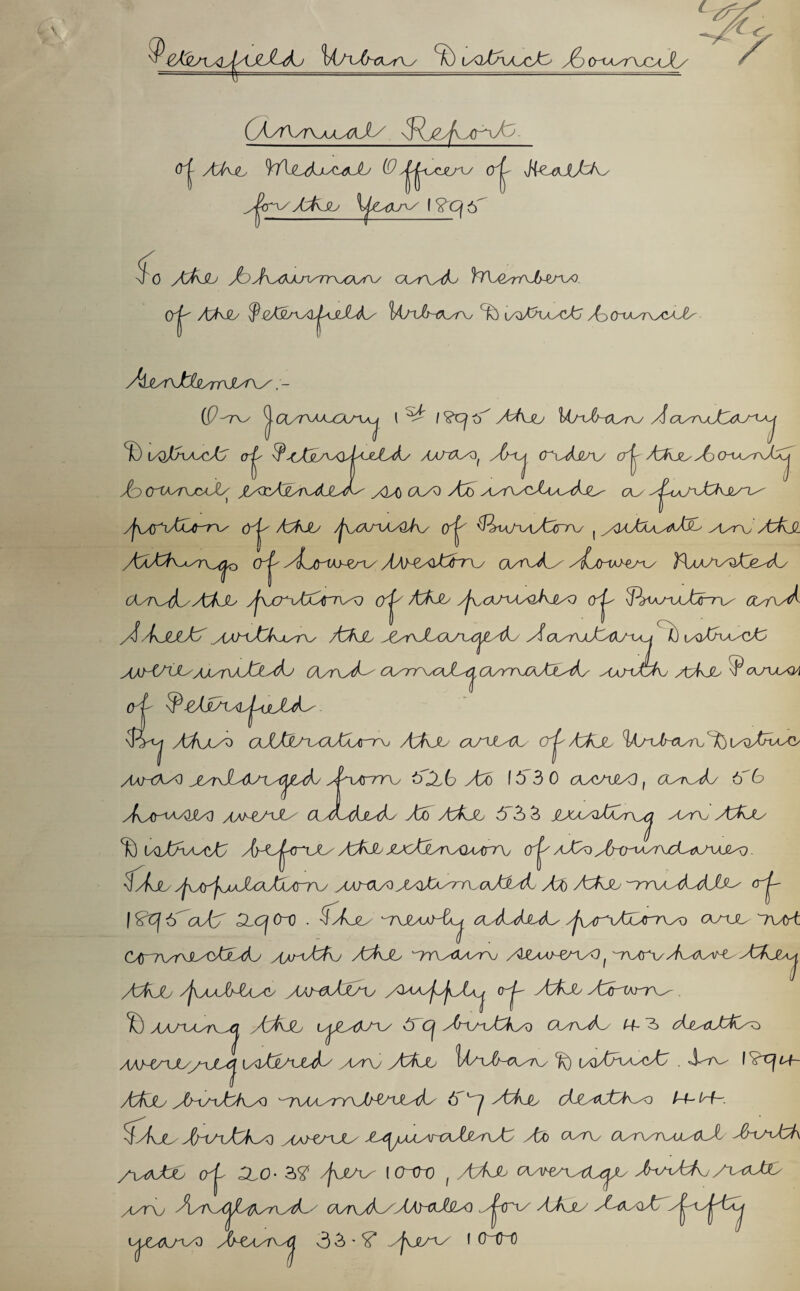 Petersfield Urban District Council
Annual Report
of the Medical Officer of Health
for the Year 1895
To the Chairman and Members
of the Petersfield Urban District Council.
Gentlemen,-
On January 1st 1895 the Urban Sanitary
District of Petersfield was, by order of the County
Council, extended so as to include a further
portion of the parish of Buriton, situate in the
tithing of Lower Weston and Lower Nursted
and the portions of the parishes of Buriton and
Sheet within the enlarged Sanitary District
were united and amalgamated with the Parish
of Petersfield.
By this alteration the area of the Urban District
was enlarged from 526 to 1530 acres, and 56
houses were added to the 533 existing in the
District before the extension of its boundaries.
The population was estimated to the middle of
1895 at 2900. The newly added portions are not
connected with the main sewers, nor have they
the public water supply of the town.
During the year 59 births and 43 deaths
were registered in the Urban District. In 1894
the births numbered 57 the deaths 44.
The births were equivalent to an annual birth
rate of 20.38 per 1000, the average birth rate
in England and Wales for the last fifty
years being 33.8 per 1000